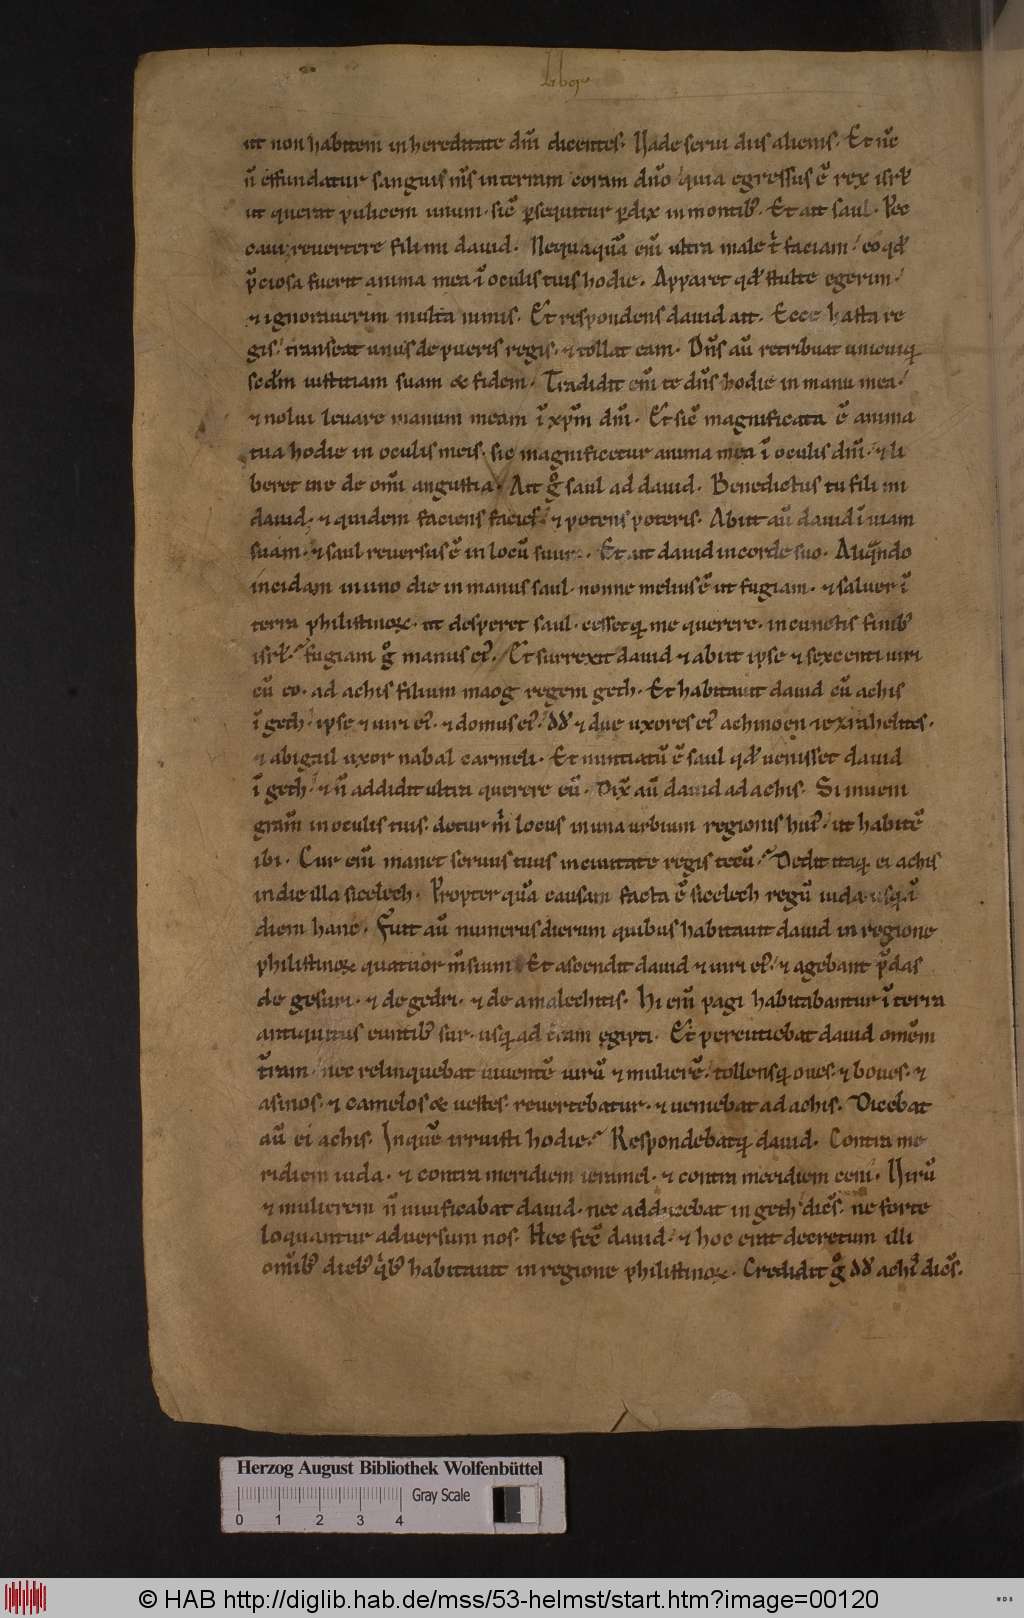 ut non habitem in hereditate dñi dicentes. Vade serui diis alienis. Et nc̄
ñ effundatur sanguis m̄s in terram coram dño quia egressus ē rex isrł
ut querat pulicem unum. sic̄ ꝑsequitur ꝑdix in montibꝫ. Et ait saul. Pec
caui; reuertere fili mi dauid. Nequaquā em̄ ultra male t͛ faciam. eo qđ
p̄ciosa fuerit anima mea ī oculis tuis hodie. Apparet qđ stulte egerim.
⁊ ignorauerim multa nimis. Et respondens dauid ait. Ecce hasta re
gis. transeat unus de pueris regis. ⁊ tollat eam. Dñs aū retribuat unicuiqꝫ
scđm iustitiam suam & fidem. Tradidit em̄ te dñs hodie in manu mea.
⁊ nolui leuare manum meam ī xpm̄ dñi. Et sic̄ magnificata ē anima
tua hodie in oculis meis. sic magnificetur anima mea ī oculis dñi. ⁊ li
beret me de om̄i angustia. Ait gͦ saul ad dauid. Benedictus tu fili mi
dauid. ⁊ quidem faciens facies. ⁊ potens poteris. Abiit aū dauid ī uiam
suam. ⁊ saul reuersus ē in locū suum. Et ait dauid in corde suo. Aliqn̄do
incidam in uno die in manus saul. nonne melius ē ut fugiam. ⁊ saluer ī
terra philistinoꝝ. ut desperet saul. cessetqꝫ me querere. in cunctis finibꝫ
isrł. fugiam gͦ manus eiꝰ. Et surrexit dauid ⁊ abiit ipse ⁊ sexcenti uiri
cū eo. ad achis filium maog regem geth. Et habitauit dauid cū achis
ī geth. ipse ⁊ uiri eiꝰ. ⁊ domus eiꝰ. dđ ⁊ due uxores eiꝰ achinoen iezrahelites.
⁊ abigail uxor nabal carmeli. Et nuntiatū ē saul qđ uenisset dauid
ī geth. ⁊ ñ addidit ultra querere eū. Dix̄ aū dauid ad achis. Si inueni
gram̄ in oculis tuis. detur m͛ locus in una urbium regionis huiꝰ. ut habitē
ibi. Cur em̄ manet seruus tuus in ciuitate regis tecū. Dedit itaqꝫ ei achis
in die illa sicelech. Propter quā causam facta ē sicelech regū iuda. usqꝫ ī
diem hanc. Fuit aū numerus dierum quibus habitauit dauid in regione
philistinoꝝ quatuor m̄sium. Et ascendit dauid ⁊ uiri eiꝰ. ⁊ agebant p̄das
de gesuri. ⁊ de gedri. ⁊ de amalechitis. Hi em̄ pagi habitabantur ī terra
antiquitus euntibꝫ sur. usqꝫ ad t͛ram egipti. Et percutiebat dauid omēm
t͛ram. nec relinquebat uiuentē uirū ⁊ mulierē. tollensqꝫ oues. ⁊ boues. ⁊
asinos. ⁊ camelos & uestes. reuertebatur. ⁊ ueniebat ad achis. Dicebat
aū ei achis. In quē irruisti hodie. Respondebatqꝫ dauid. Contra me
ridiem iuda. ⁊ contra meridiem ieramel. ⁊ contra meridiem ceni. Virū
⁊ mulierem ñ uiuificabat dauid. nec adducebat in geth dicēs. ne forte
loquantur aduersum nos. Hec fec̄ dauid. ⁊ hoc erat decretum illi
om̄ibꝫ diebꝫ q͛bꝫ habitauit in regione philistinoꝝ. Credidit gͦ dđ achiꝰ dicēs.
Herzog August Bibliothek Wolfenbüttel
Gray Scale
0 1 2 3 4
© HAB http://diglib.hab.de/mss/53-helmst/start.htm?image=00120